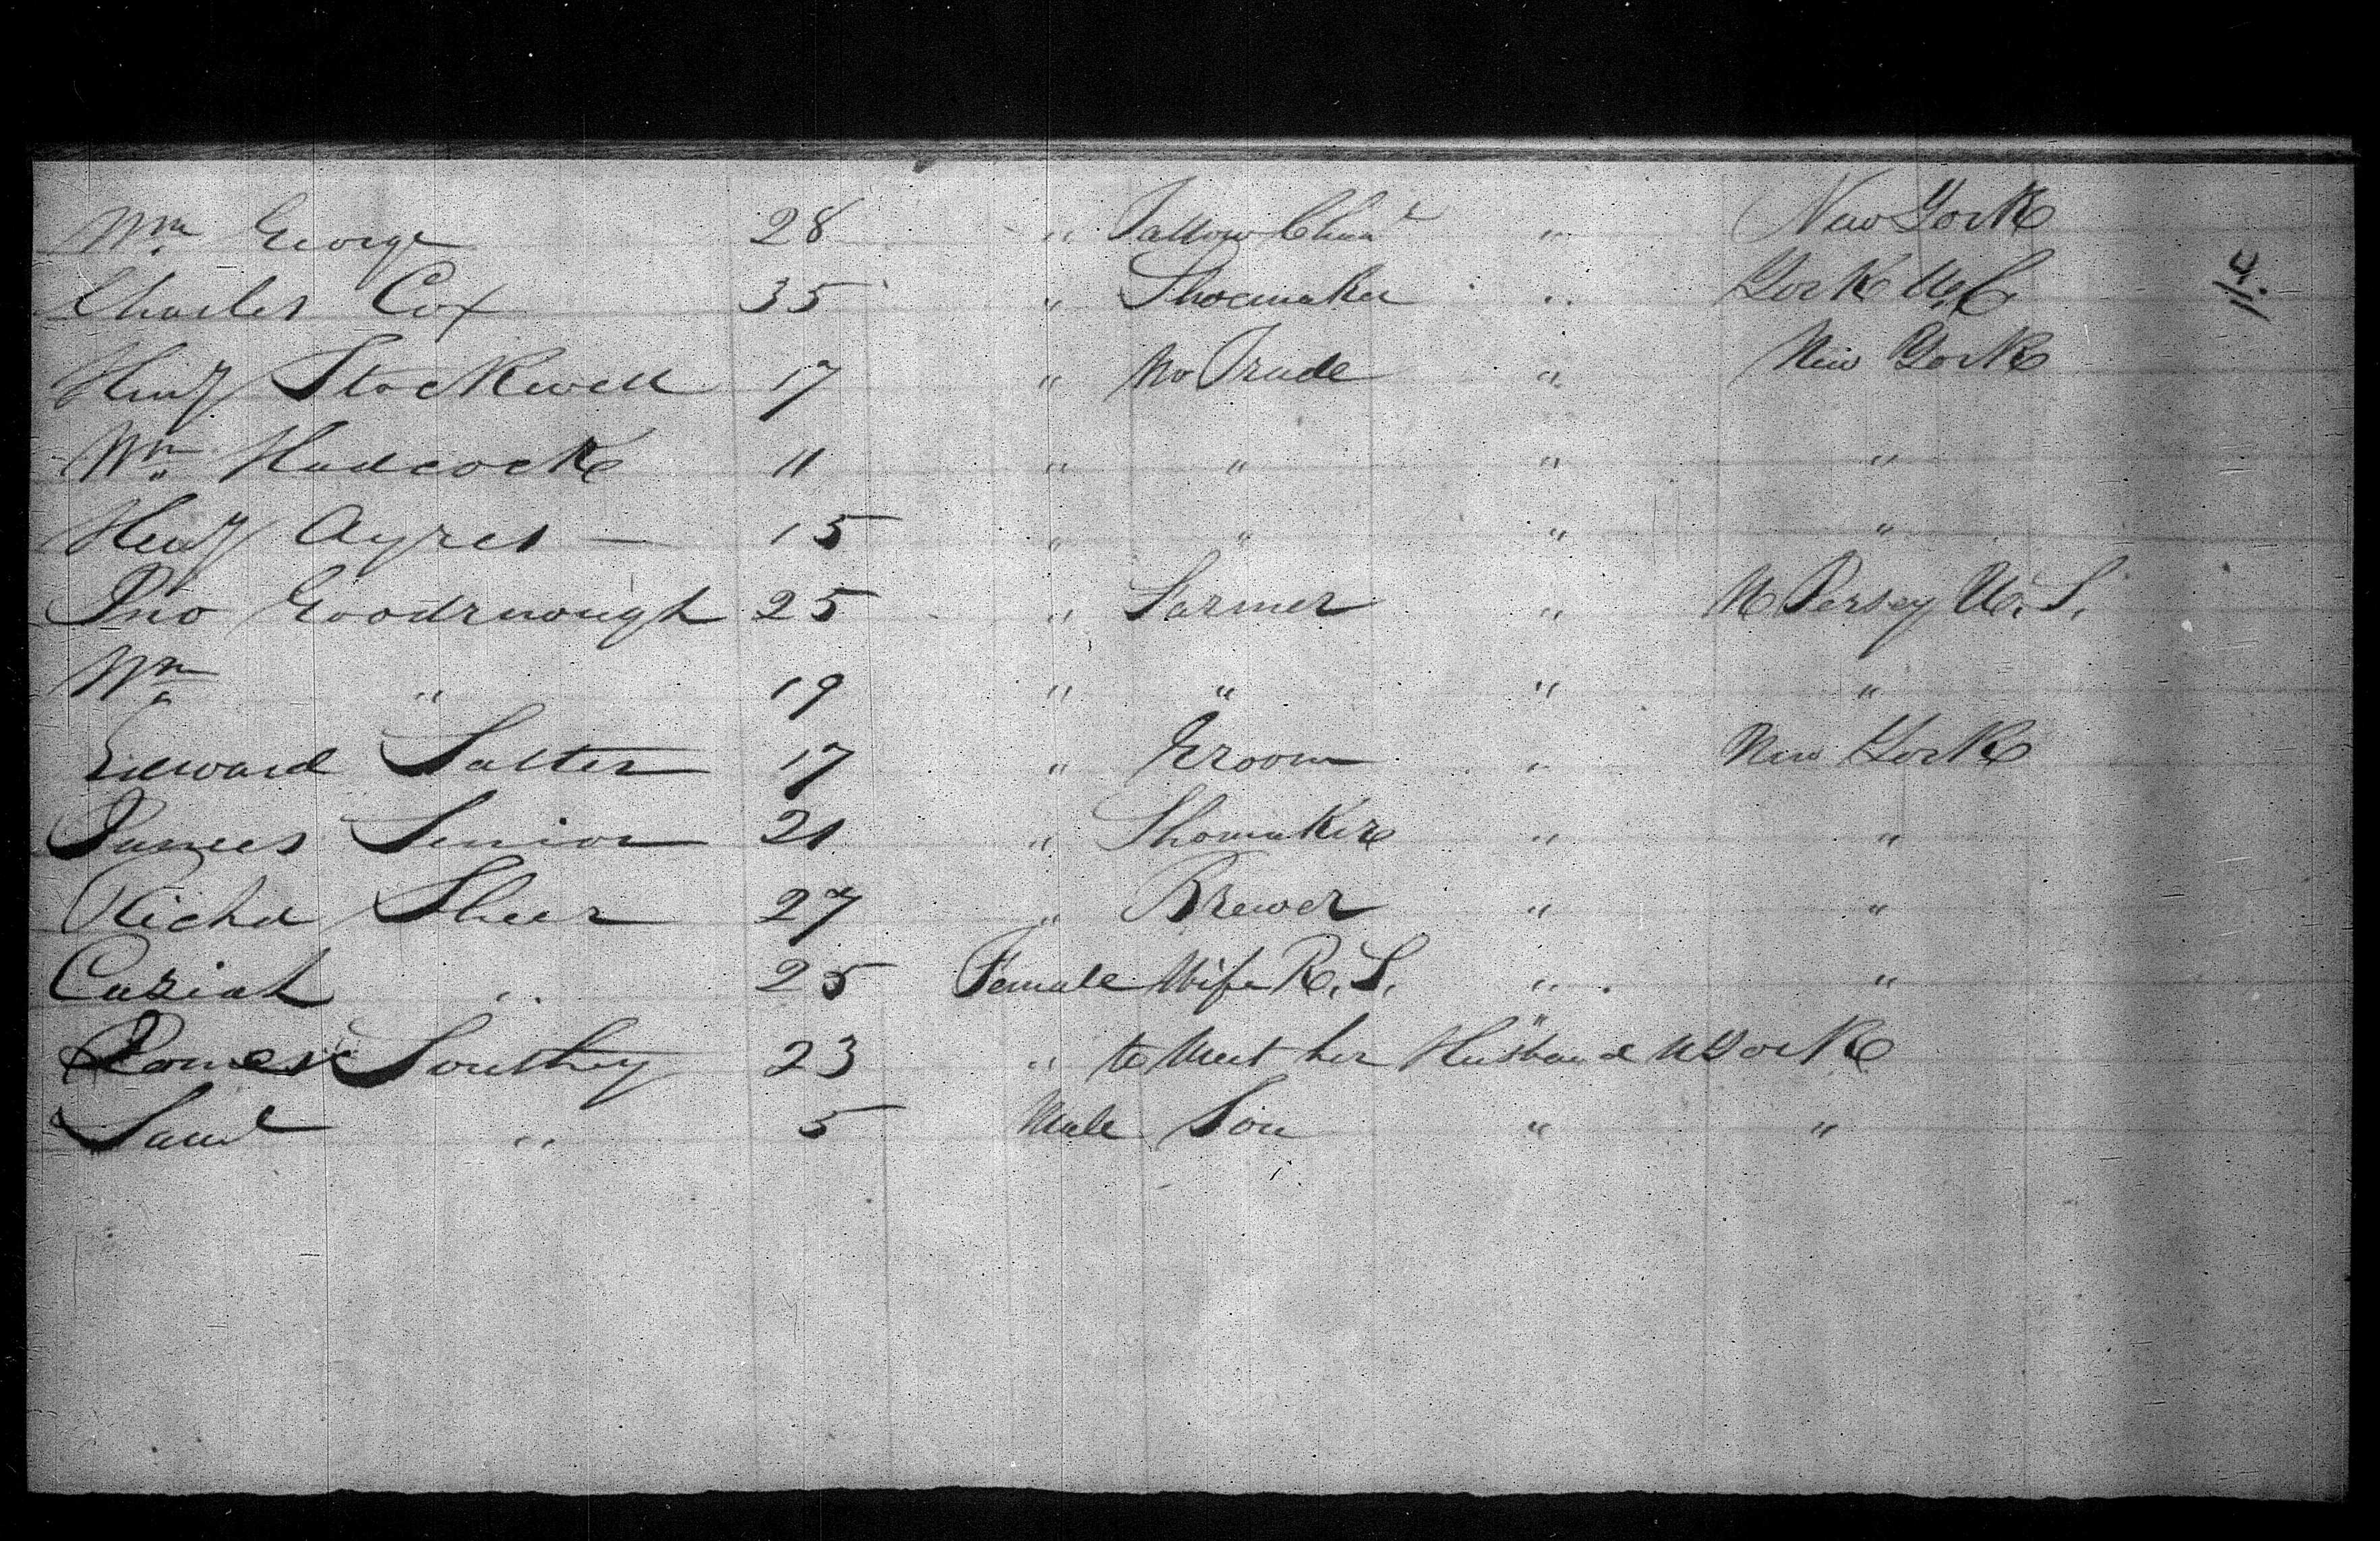 Wm George 28 " Tallow Chanr " New York
Charles Cox 35 " Shoemaker " York U.C. 14.
Heny Stockwell 17 " No Trade " New York
Wm Hadcock 11 " " " "
Heny Ayres — 15 " " " "
Jno Goodenough 25 " Farmer " N Jersey U.S.
Wm " 19 " " " "
Edward Salter 17 " Groom " New York
James Senior 21 " Shomaker " "
Richd Sheer 27 " Brewer " "
Caziah " 25 Female Wife R. S. " "
Southey 23 " to Meet her Husband N York
Saml " 5 Male Son " "